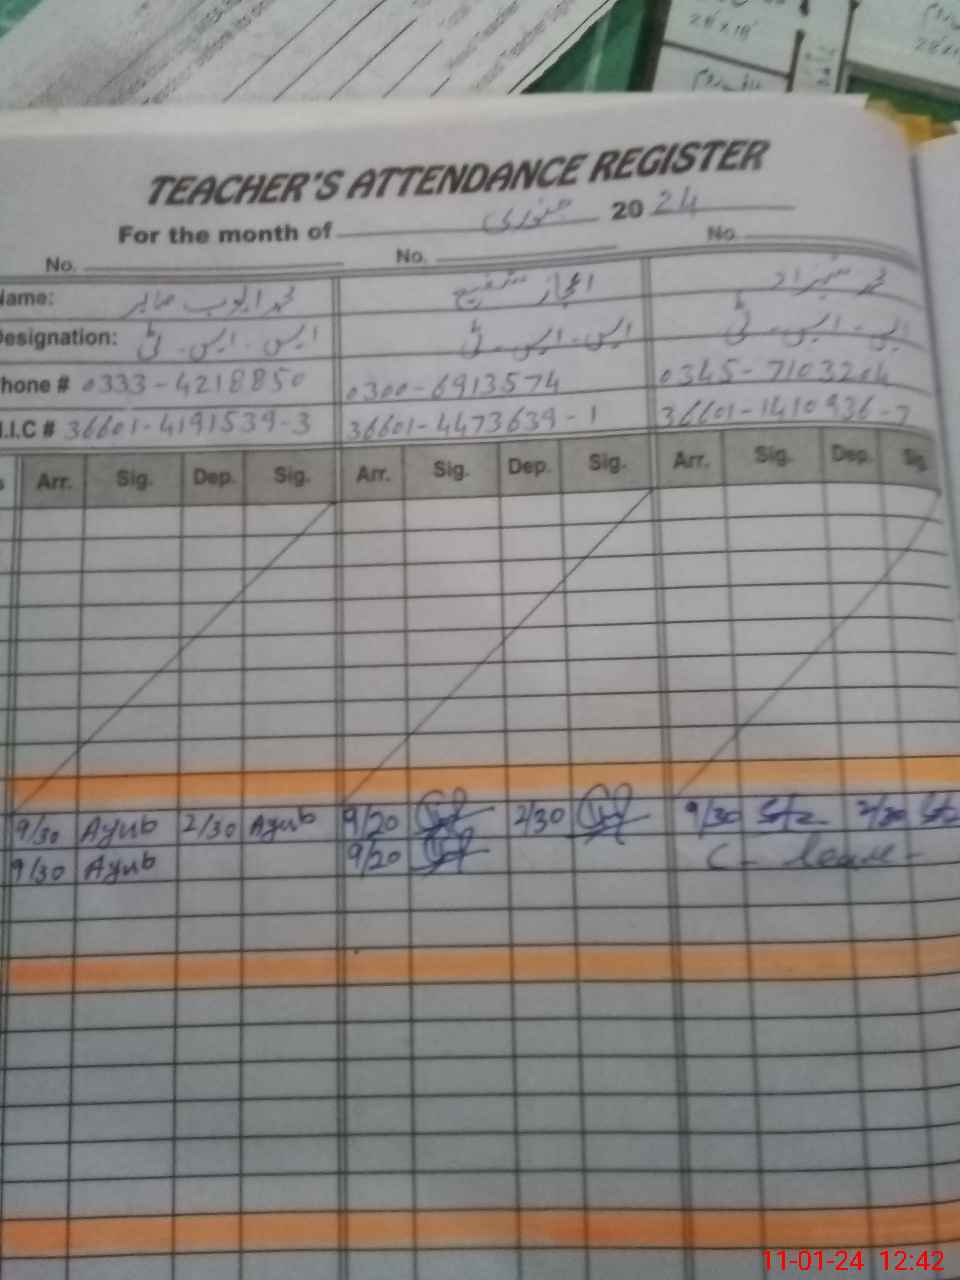 28'x18'
TEACHER'S ATTENDANCE REGISTER
For the month of جنوری 2024
No. No. No.
Name: محمد ایوب صابر اعجاز شفیع محمد شہزاد
Designation: ایس۔ایس۔ٹی ایس۔ایس۔ٹی ای۔ایس۔ٹی
Phone # 0333-4218850 0300-6913574 0345-7103204
N.I.C # 36601-4191539-3 36601-4473639-1 36601-1410936-7
Arr. Sig. Dep. Sig. Arr. Sig. Dep. Sig. Arr. Sig. Dep. Sig.
9/30 Ayub 2/30 Ayub 9/20 2/30 9/30 2/30
9/30 Ayub 9/20 C- leave-
11-01-24 12:42